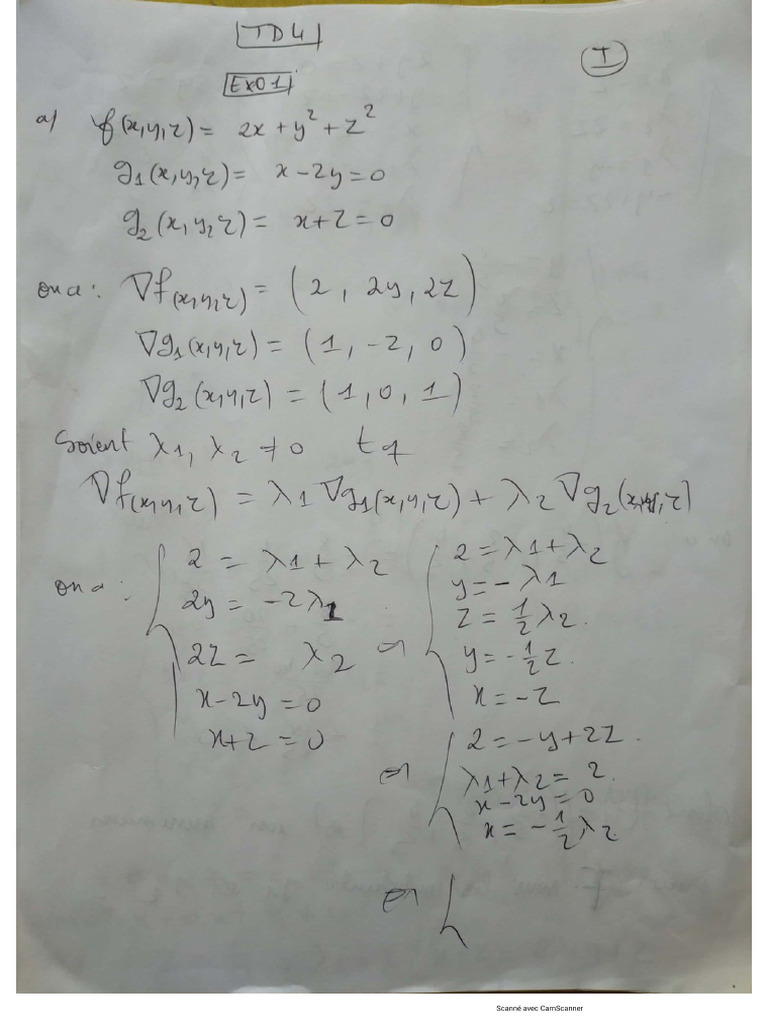 TD4
I
Exo1
a) f(x,y,z) = 2x + y² + z²
g₁(x,y,z) = x - 2y = 0
g₂(x,y,z) = x + z = 0
on a : ∇f(x,y,z) = (2, 2y, 2z)
∇g₁(x,y,z) = (1, -2, 0)
∇g₂(x,y,z) = (1, 0, 1)
Soient λ1, λ2 ≠ 0 tq
∇f(x,y,z) = λ1 ∇g₁(x,y,z) + λ2 ∇g₂(x,y,z)
on a : { 2 = λ1 + λ2
2y = -2λ1
2z = λ2
x - 2y = 0
x + z = 0
⇔ { 2 = λ1 + λ2
y = -λ1
z = 1/2 λ2
y = -1/2 z
x = -z
⇔ { 2 = -y + 2z
λ1 + λ2 = 2
x - 2y = 0
x = -1/2 λ2
⇔ {
Scanné avec CamScanner